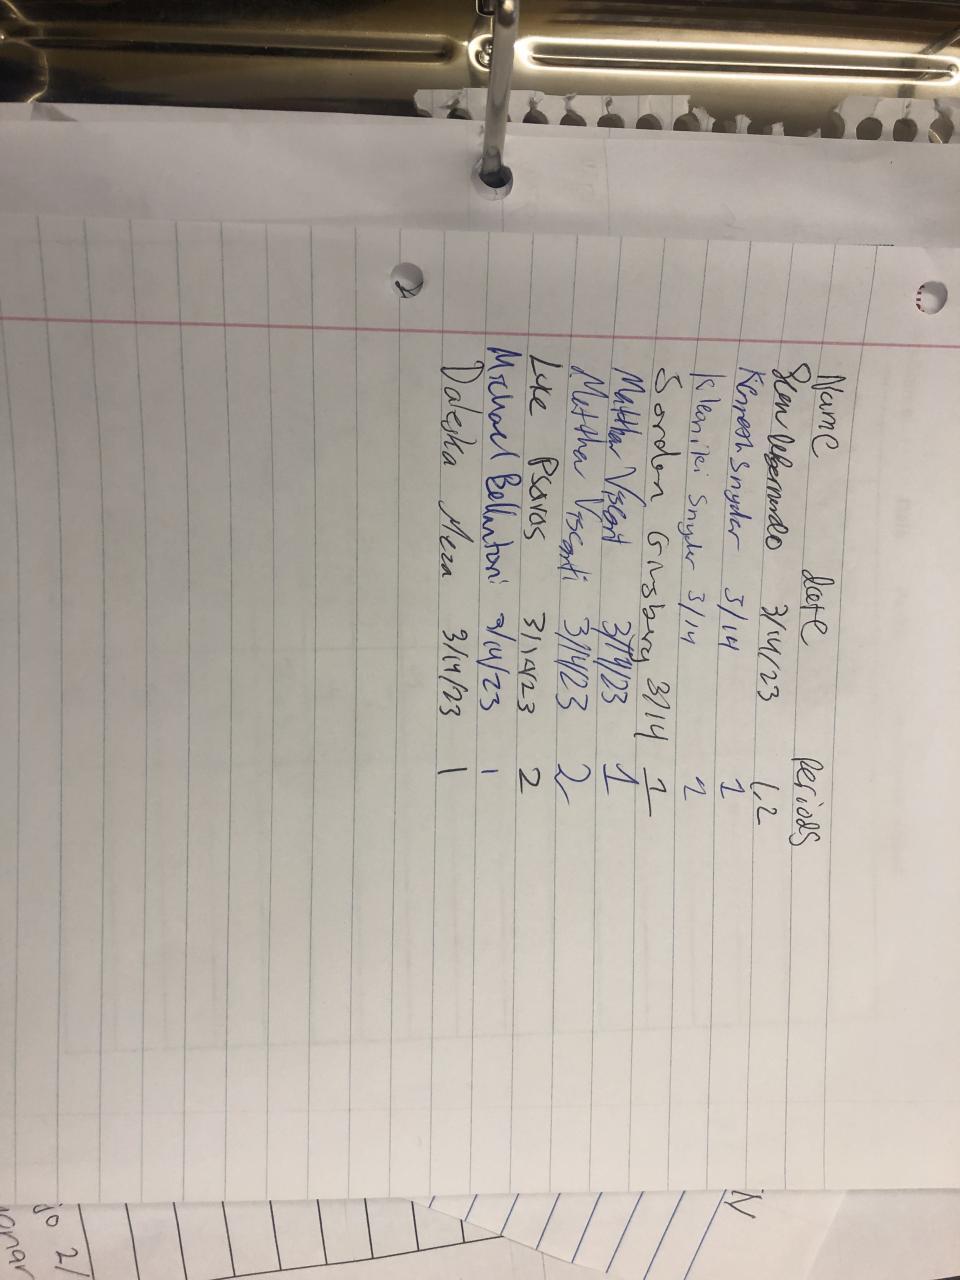 Name date Periods
Sean Libernardo 3/14/23 1,2
Kenneth Snyder 3/14 1
Kleoniki Snyder 3/14 2
Jordan Ginsberg 3/14 1
Matthew Viscont 3/14/23 1
Matthew Visconti 3/14/23 2
Luke Psaros 3/14/23 2
Michael Bellantoni 3/14/23 1
Daleska Meza 3/14/23 1
N
jo 2/